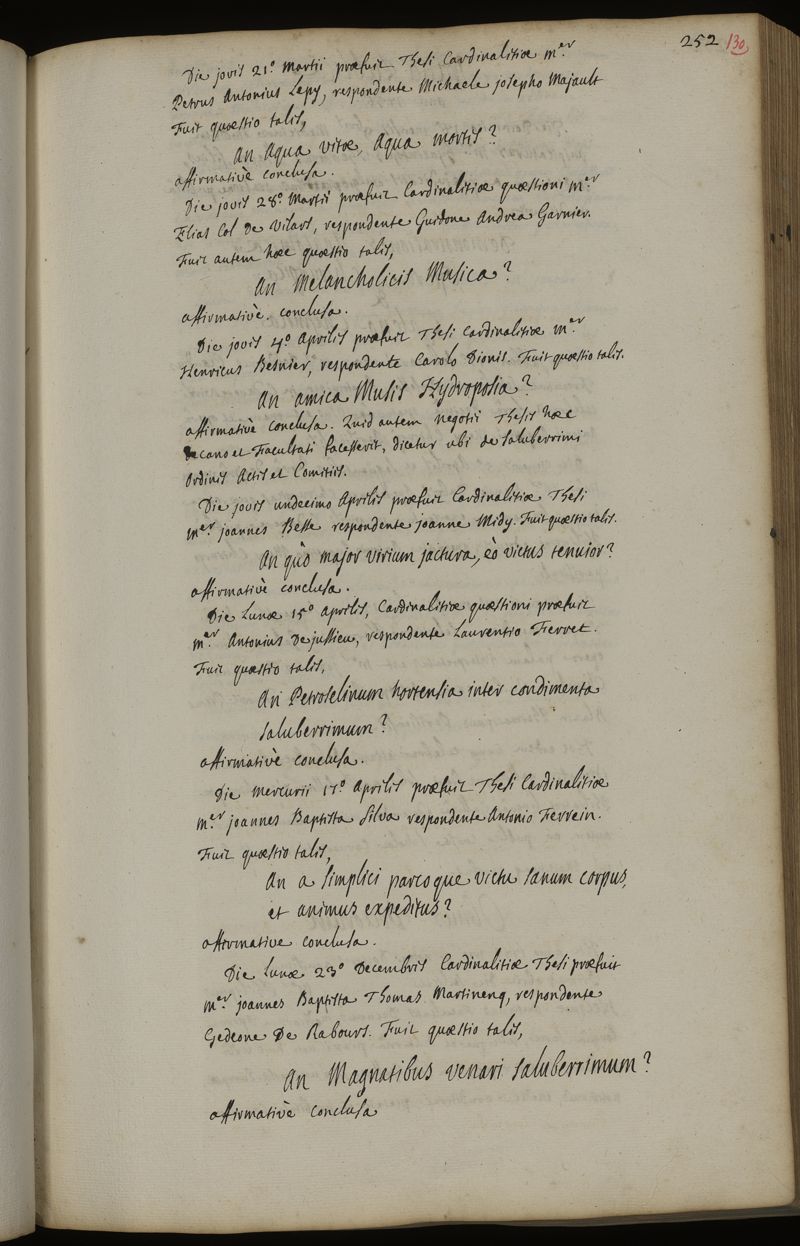 252 130
Die jovis 21º martii præfuit Thesi Cardinalitiæ mer
Petrus Antonius Lepy, respondente Michaele josepho Majault
Fuit quæstio talis,
An Aqua vitæ, Aqua mortis?
affirmativè conclusa.
Die jovis 28º Martii præfuit Cardinalitiæ quæstioni Mer
Elias Col De Vilars, respondente Guidone Andrea Garnier.
Fuit autem hæc quæstio talis,
An Melancholicis Musica?
affirmativè conclusa.
Die jovis 4º Aprilis præfuit Thesi Cardinalitiæ Mer
Henricus Besnier, respondente Carolo Dionis. Fuit quæstio talis.
An amica Musis Hydroposia?
affirmativè conclusa. Quid autem negotii Thesis hæc
Decano et Facultati facesserit, dicetur ubi de saluberrimi
Ordinis Actis et Comitiis.
Die jovis undecimo Aprilis præfuit Cardinalitiæ Thesi
mer joannes Besse respondente joanne Midy. Fuit quæstio talis.
An quò major virium jactura, eò victus tenuior?
affirmativè conclusa.
Die Lunæ 15º aprilis, Cardinalitiæ quæstioni præfuit
mer Antonius De jussieu, respondente Laurentio Ferret.
Fuit quæstio talis,
An Petroselinum hortensia inter condimenta
saluberrimum?
affirmativè conclusa.
Die mercurii 17º Aprilis præfuit Thesi Cardinalitiæ
mer joannes Baptista Silva respondente Antonio Ferrein.
Fuit quæstio talis,
An a simplici parcoque victu sanum corpus,
et animus expeditus?
affirmative conclusa.
Die Lunæ 23º Decembris Cardinalitiæ Thesi præfuit
Mer joannes Baptista Thomas Martinenq, respondente
Gedeone De Rabours. Fuit quæstio talis,
An Magnatibus venari saluberrimum?
affirmativè conclusa